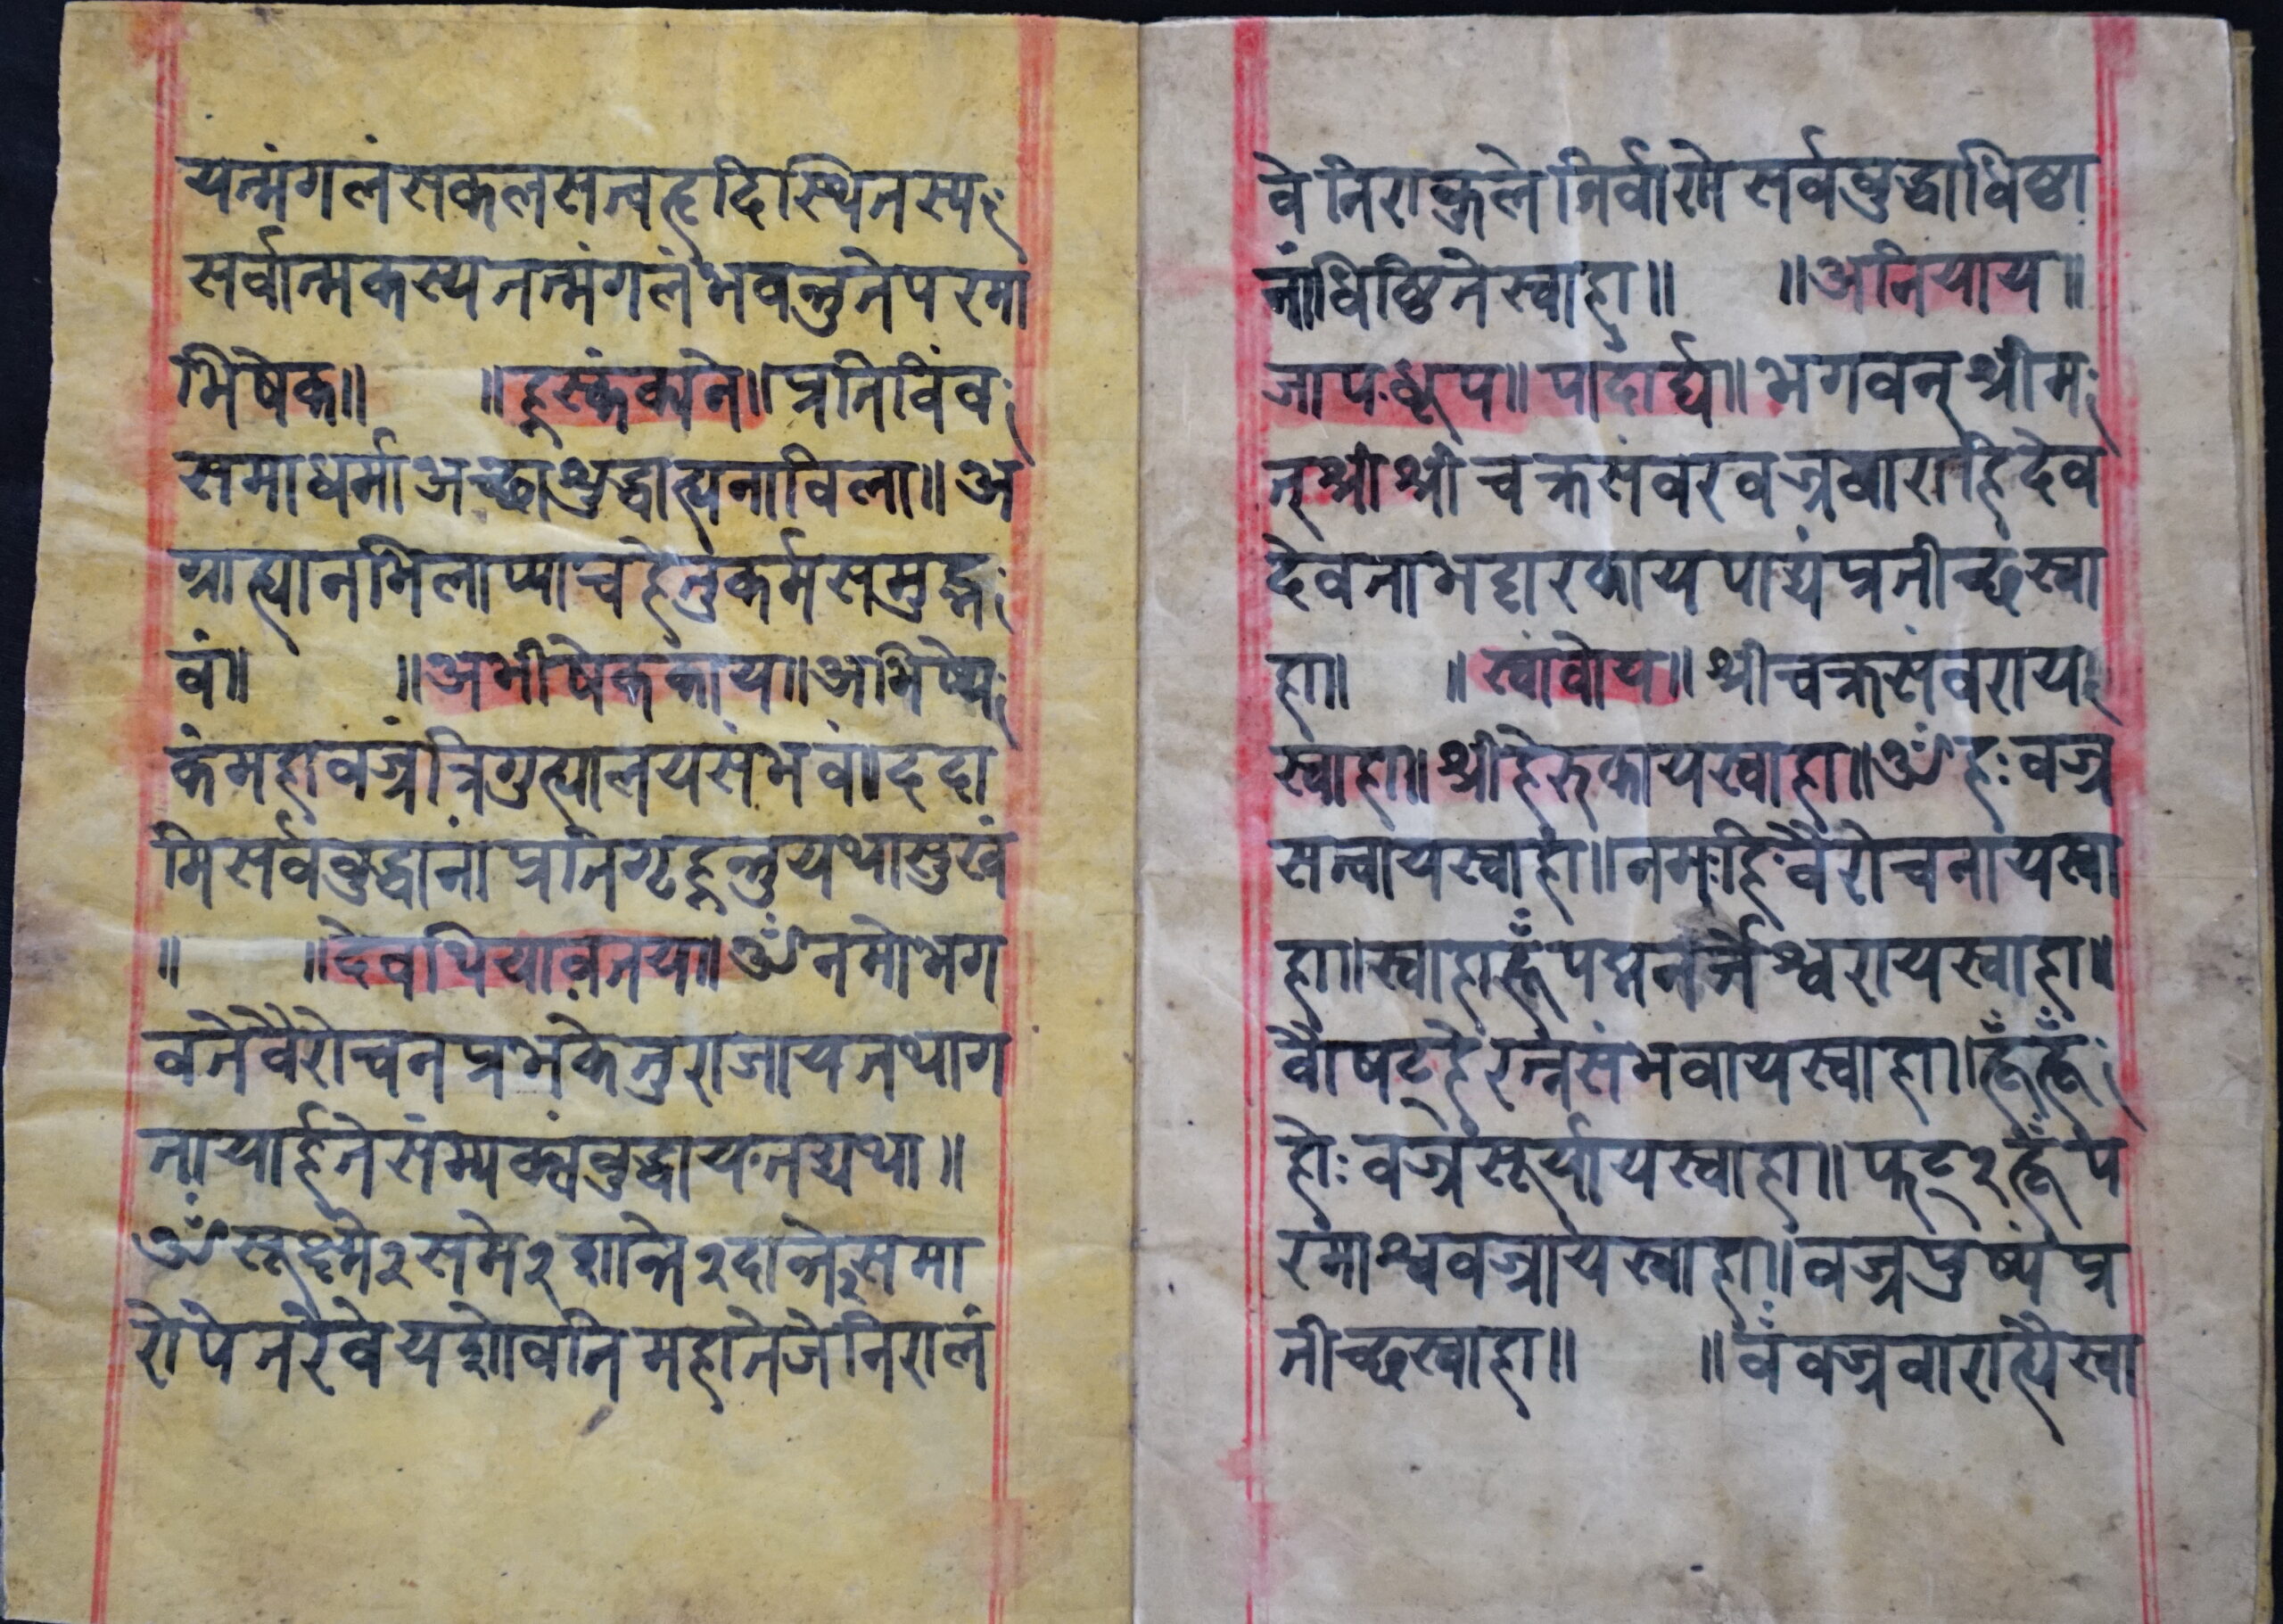 यन्मंगलं सकलसत्वहृदिस्थितस्य
सर्वात्मकस्य तन्मंगलं भवन्तु ते परमा
भिषेक॥ ॥ह्रस्कंक्यने॥ प्रतिविंव
समाधर्मा अच्छा शुद्धाह्यनाविला॥ अ
ग्राह्यानभिलाप्याच हेतुकर्मसमुद्भ
वं॥ ॥अभीषेककाय॥ अभिष्ये
कं महावज्रं त्रिगुह्यालयसंभवं॥ ददा
मि सर्वबुद्धानां प्रतिगृह्नन्तु यथासुखं
॥ ॥देवथियावतय॥ ॐ नमो भग
वते वैरोचनप्रभकेतुराजाय तथाग
तायार्हते संम्यक्संबुद्धाय तद्यथा॥
ॐ सूक्ष्मे २ समे २ शान्ते २ दान्ते २ समा
रोपे नरैवे यशोवति महातेजे निरालं
वे निराकुले निर्वाणे सर्वबुद्धाधिष्ठा
नाधिष्ठिते स्वाहा॥ ॥अनियाय॥
जाप धूप॥ पादार्घ्य॥ भगवन् श्रीम
त् श्री श्री चक्रसंवर वज्रवाराहि देव
देवता भट्टारकाय पाद्यं प्रतीच्छं स्वा
हा॥ ॥स्वांवोय॥ श्रीचक्रसंवराय
स्वाहा॥ श्रीहेरुकाय स्वाहा॥ ॐ हः वज्र
सत्वाय स्वाहा॥ नमः हि वैरोचनाय स्वा
हा॥ स्वाहा हूँ पद्मनर्त्तेश्वराय स्वाहा॥
वौषट् हे रत्नसंभवाय स्वाहा॥ हूँ हूँ
होः वज्रसूर्याय स्वाहा॥ फट् २ हूँ प
रमाश्ववज्राय स्वाहा॥ वज्रपुष्पं प्र
तीच्छ स्वाहा॥ ॥वँ वज्रवाराह्यै स्वा